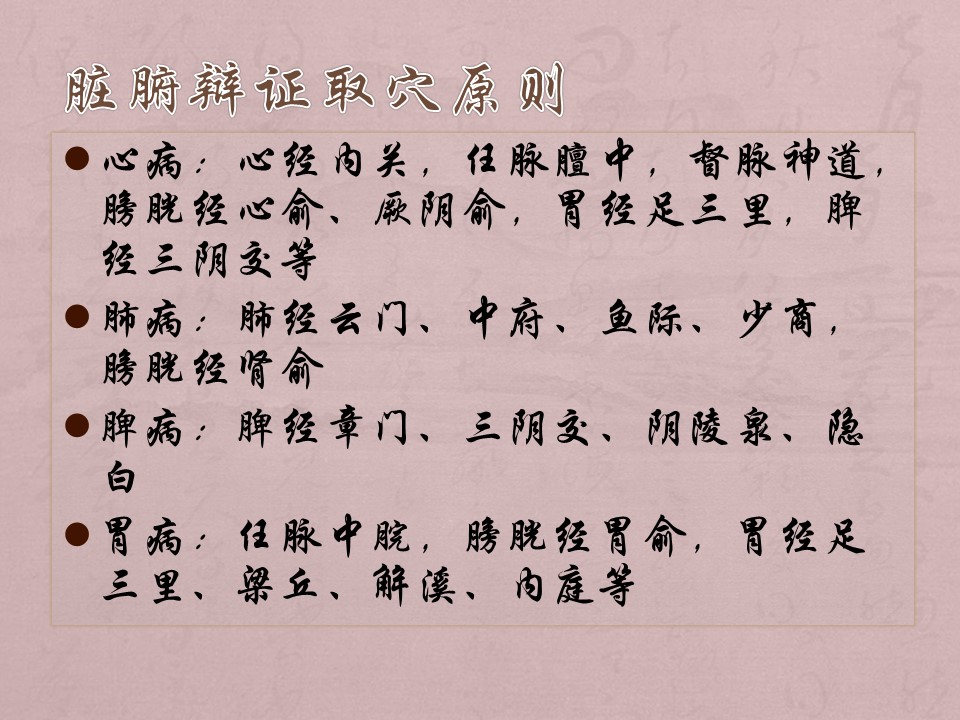 脏腑辩证取穴原则
心病：心经内关，任脉膻中，督脉神道，
膀胱经心俞、厥阴俞，胃经足三里，脾
经三阴交等
肺病：肺经云门、中府、鱼际、少商，
膀胱经肾俞
脾病：脾经章门、三阴交、阴陵泉、隐
白
胃病：任脉中脘，膀胱经胃俞，胃经足
三里、梁丘、解溪、内庭等